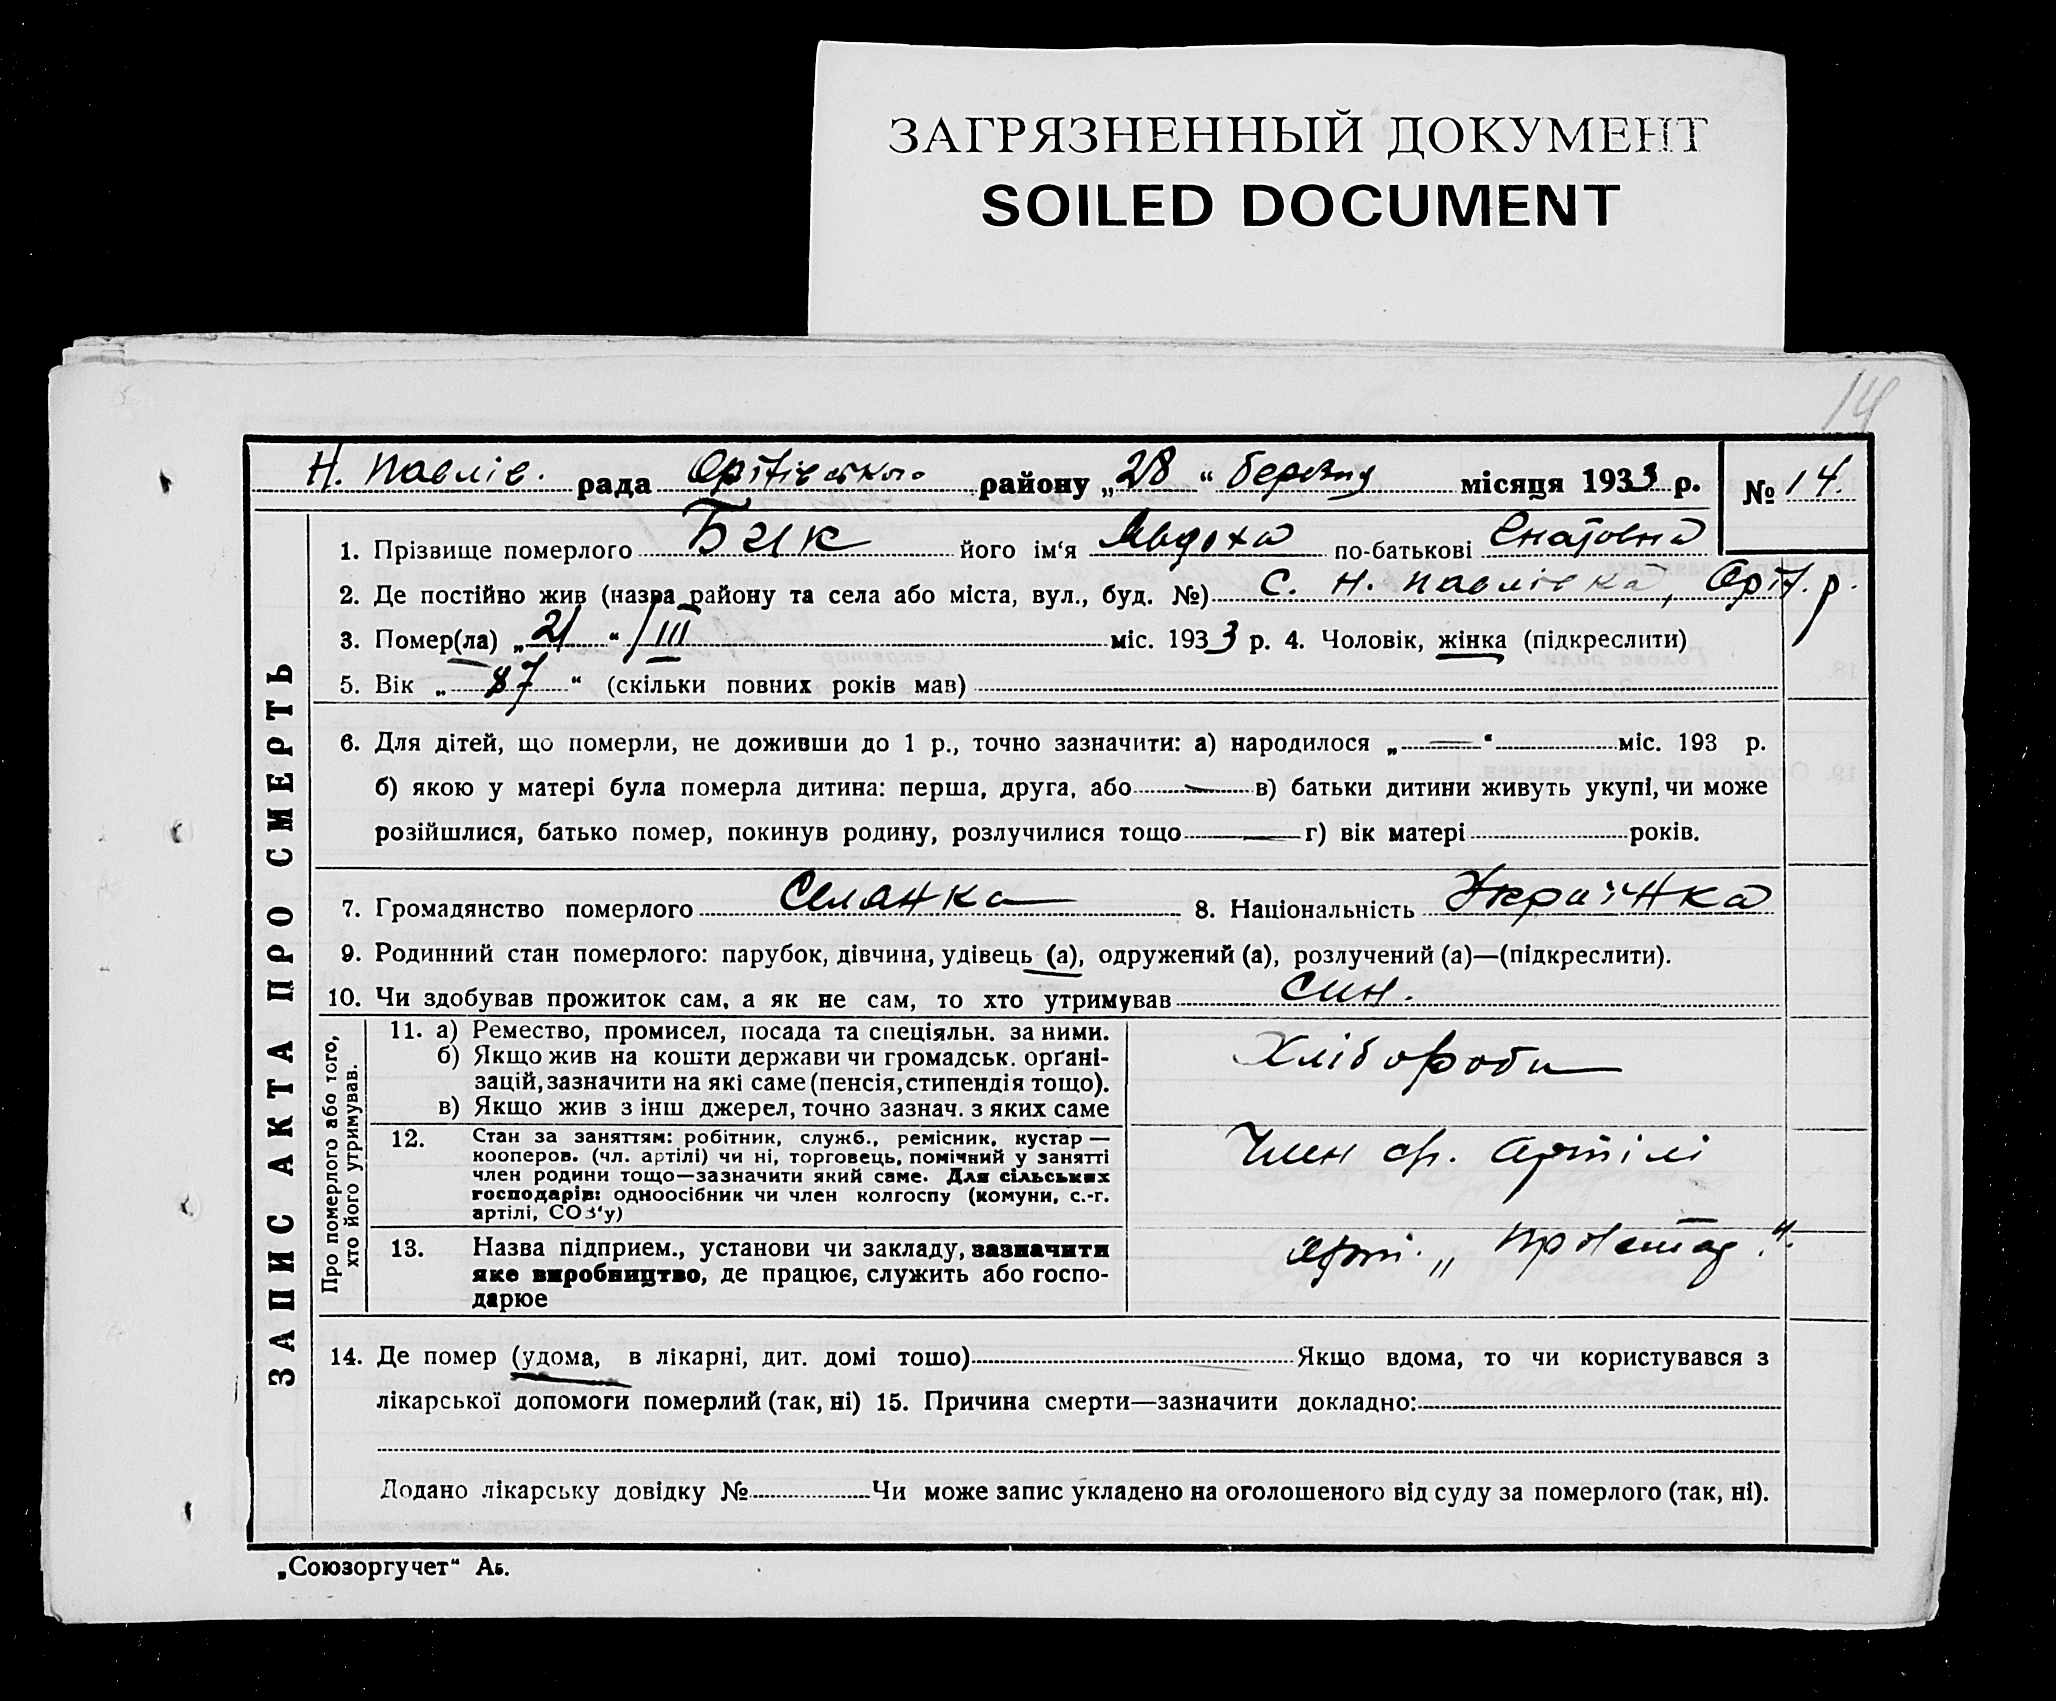 ЗАГРЯЗНЕННЫЙ ДОКУМЕНТ
SOILED DOCUMENT
14
Н. Павлів. рада Оріхівського району „28“ березня місяця 1933 р. № 14.
ЗАПИС АКТА ПРО СМЕРТЬ
1. Прізвище померлого Бик його ім'я Явдоха по-батькові Єнатовна
2. Де постійно жив (назва району та села або міста, вул., буд. №) С. Н. Павлівка, Оріх. р.
3. Помер(ла) „21“ /III міс. 1933 р. 4. Чоловік, жінка (підкреслити)
5. Вік „87“ (скільки повних років мав)
6. Для дітей, що померли, не доживши до 1 р., точно зазначити: а) народилося „—“ міс. 193 р.
б) якою у матері була померла дитина: перша, друга, або — в) батьки дитини живуть укупі, чи може
розійшлися, батько помер, покинув родину, розлучилися тощо — г) вік матері років.
7. Громадянство померлого Селянка 8. Національність Українка
9. Родинний стан померлого: парубок, дівчина, удівець (а), одружений (а), розлучений (а)—(підкреслити).
10. Чи здобував прожиток сам, а як не сам, то хто утримував син.
Про померлого або того, хто його утримував.
11. а) Ремество, промисел, посада та спеціяльн. за ними.
б) Якщо жив на кошти держави чи громадськ. орґані-
зацій, зазначити на які саме (пенсія, стипендія тощо).
в) Якщо жив з інш джерел, точно зазнач. з яких саме
Хлібороби
12. Стан за заняттям: робітник, служб., ремісник, кустар —
кооперов. (чл. артілі) чи ні, торговець, помічний у занятті
член родини тощо—зазначити який саме. Для сільських
господарів: одноосібник чи член колгоспу (комуни, с.-г.
артілі, СОЗ'у)
Член артілі
13. Назва підприєм., установи чи закладу, зазначити
яке виробництво, де працює, служить або госпо-
дарює
14. Де помер (удома, в лікарні, дит. домі тошо) Якщо вдома, то чи користувався з
лікарської допомоги померлий (так, ні) 15. Причина смерти—зазначити докладно:
Додано лікарську довідку № Чи може запис укладено на оголошеного від суду за померлого (так, ні).
„Союзоргучет“ Аб.